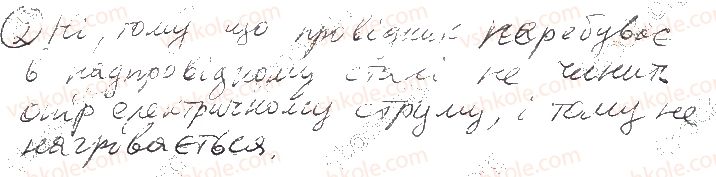 2) Ні, тому що провідник перебуває
в надпровідному стані не чинить
опір електричному струму, і тому не
нагрівається.